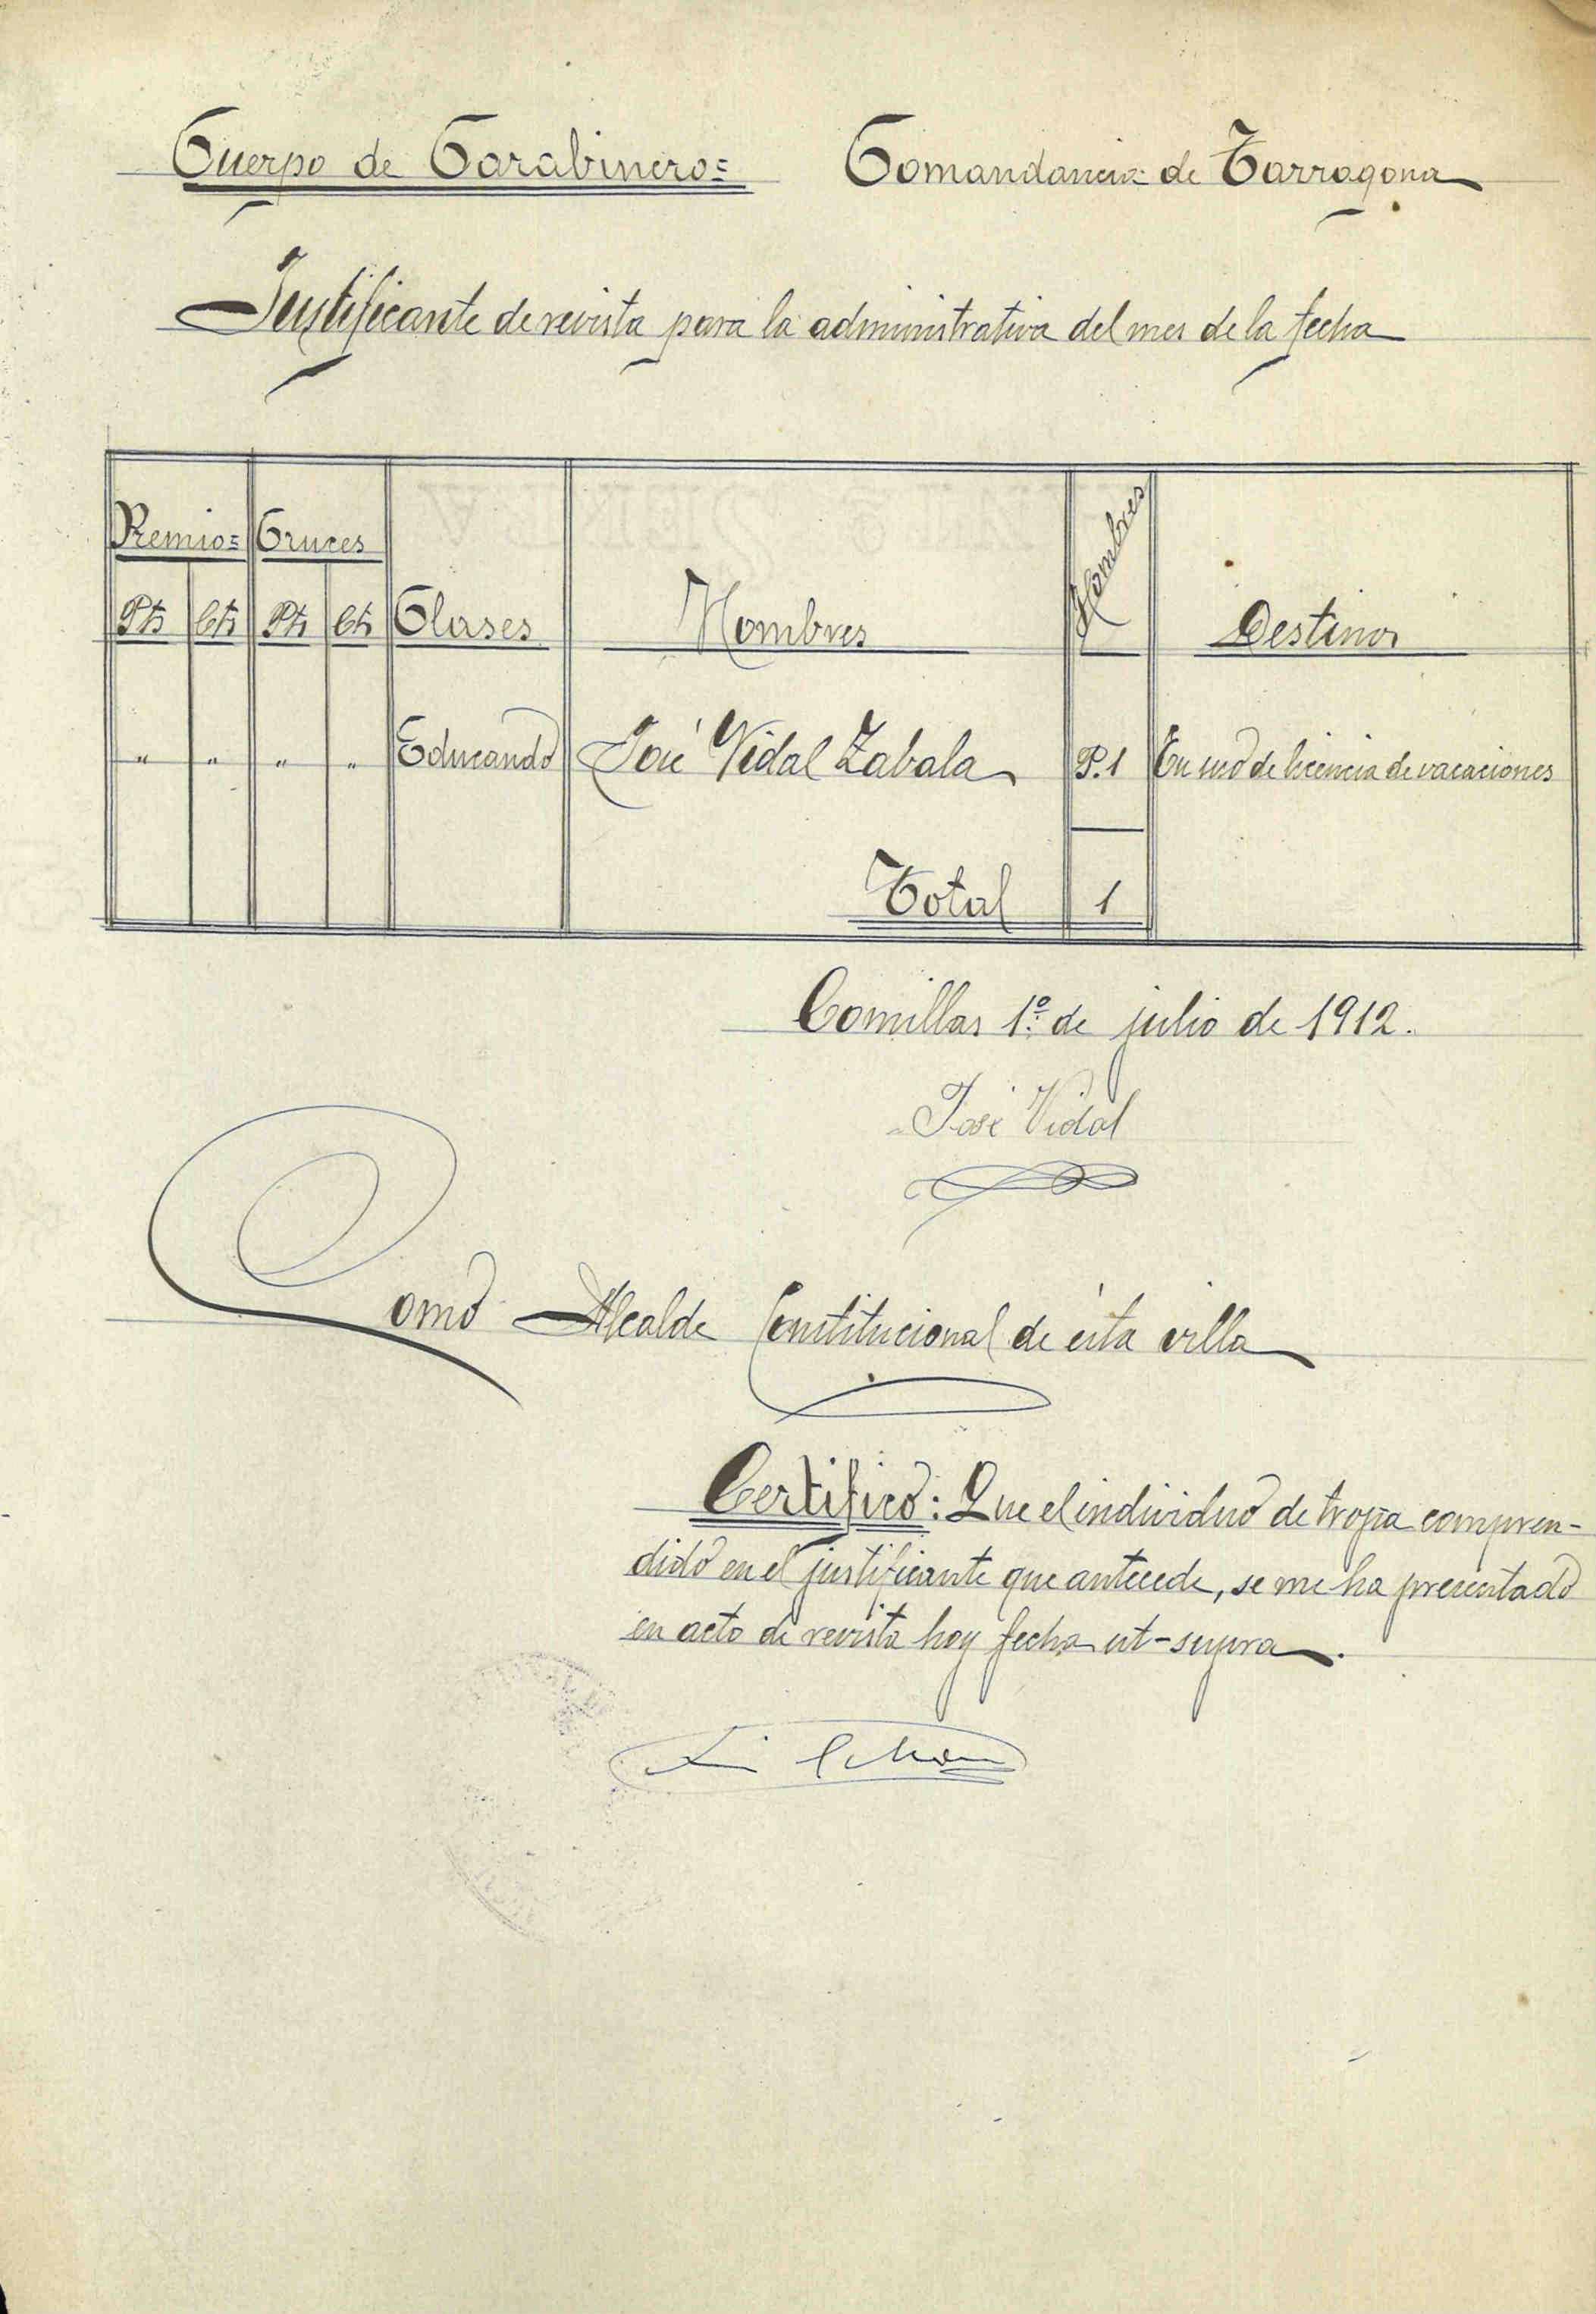 Cuerpo de Carabineros Comandancia de Tarragona
Justificante de revista para la administrativa del mes de la fecha
Premios Cruces
Pts Cts Pts Cts Clases Nombres Hombres Destinos
" " " " Educando José Vidal Zabala P.1 En uso de licencia de vacaciones
Total 1
Comillas 1º de julio de 1912.
José Vidal
Como Alcalde Constitucional de ésta villa
Certifico: Que el individuo de tropa compren-
dido en el justificante que antecede, se me ha presentado
en acto de revista hoy fecha ut-supra.